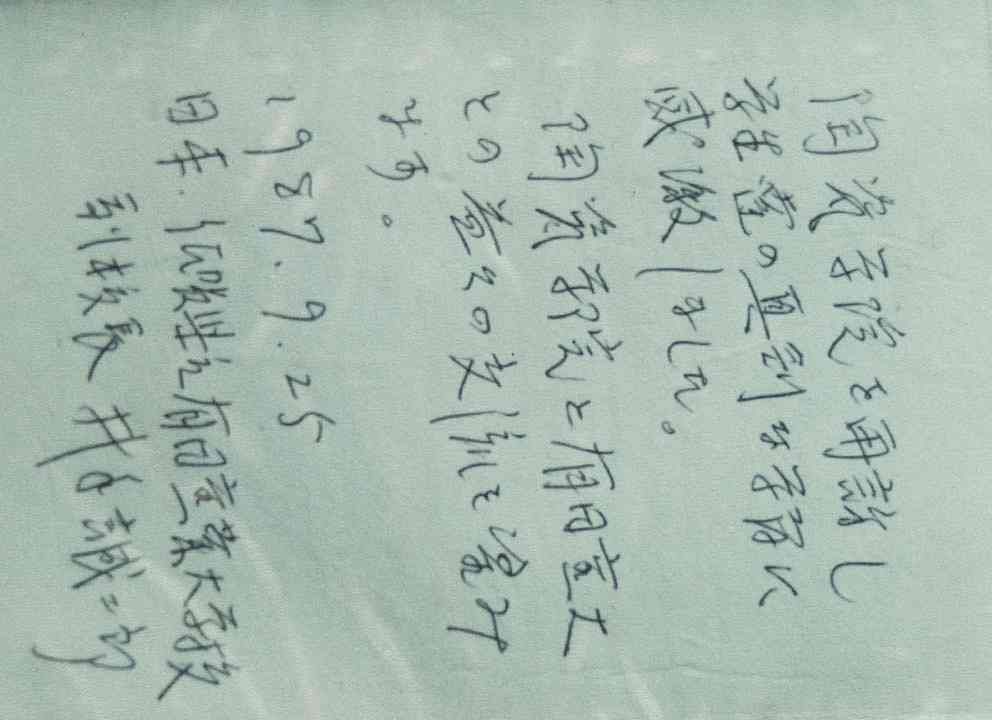 陶瓷学院を再訪し
学生達の真剣な学習に
感激しました。
陶瓷学院と有田工
との益々の交流を望み
ます。
1987.9.25
日本 佐賀県立有田工業高校
副校長 井手誠二郎